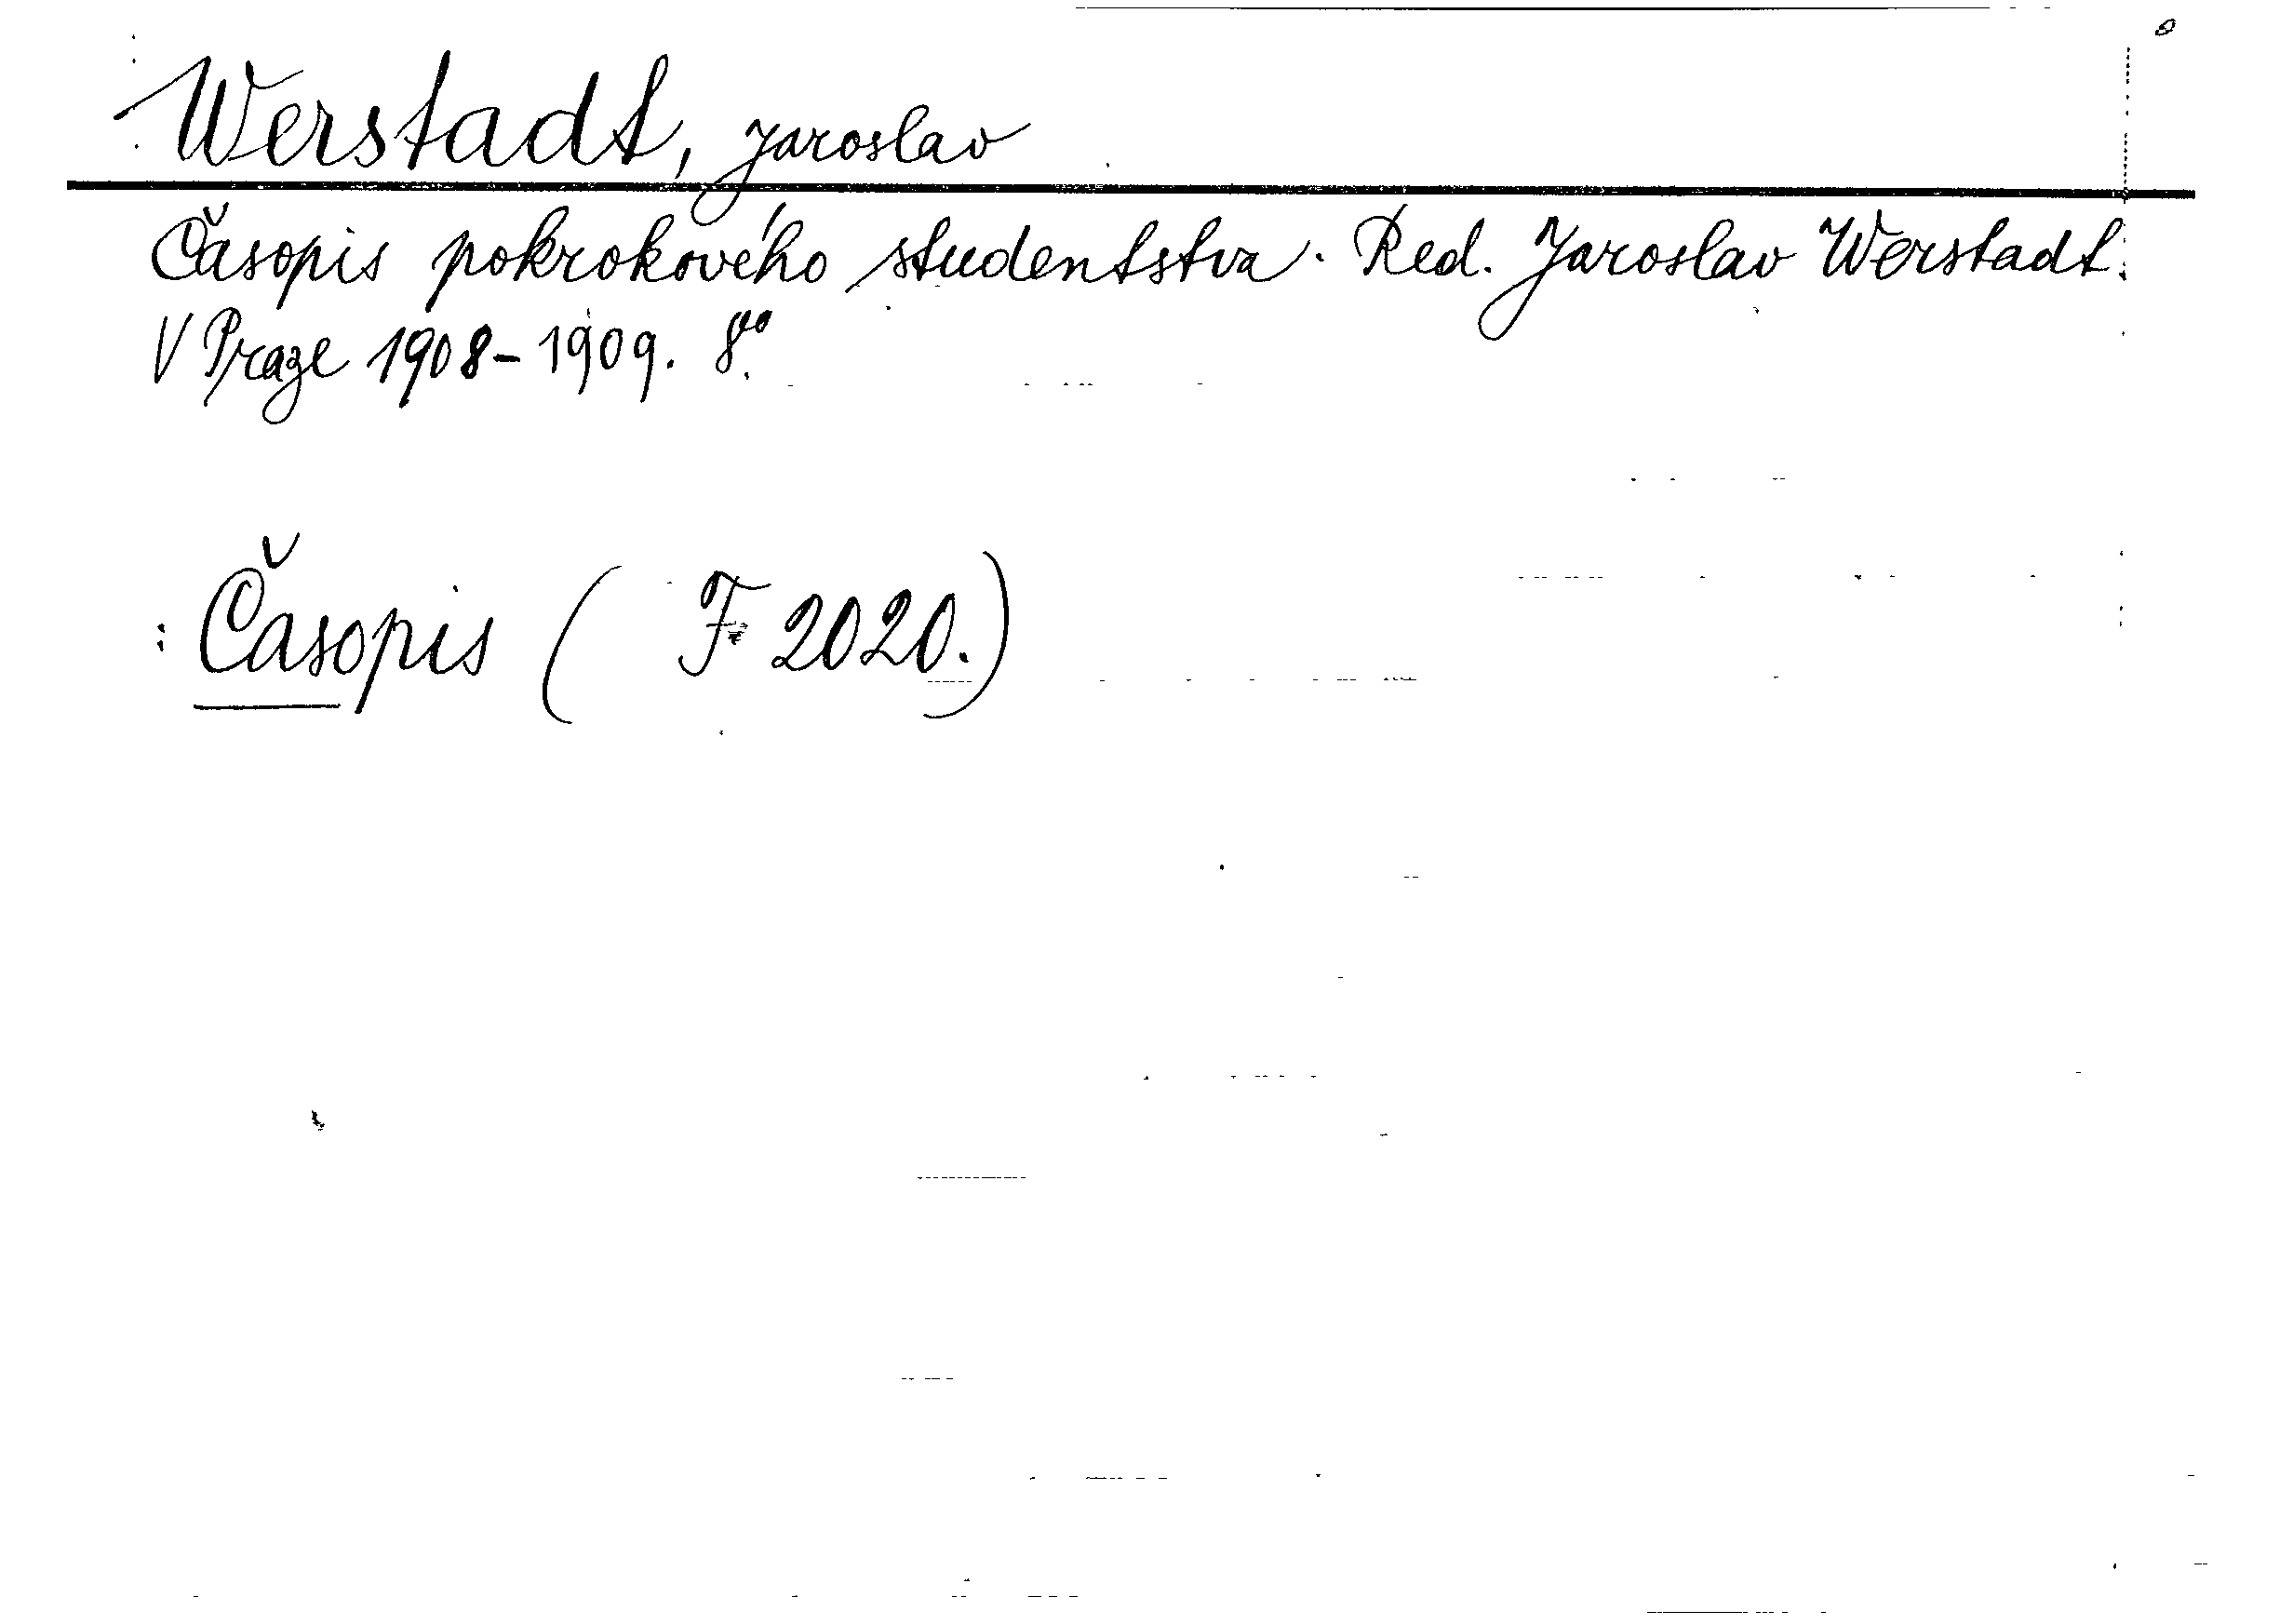 Werstadt, Jaroslav
Časopis pokrokového studentstva. Red. Jaroslav Werstadt.
V Praze 1908-1909. 8º.
Časopis ( F 2020.)